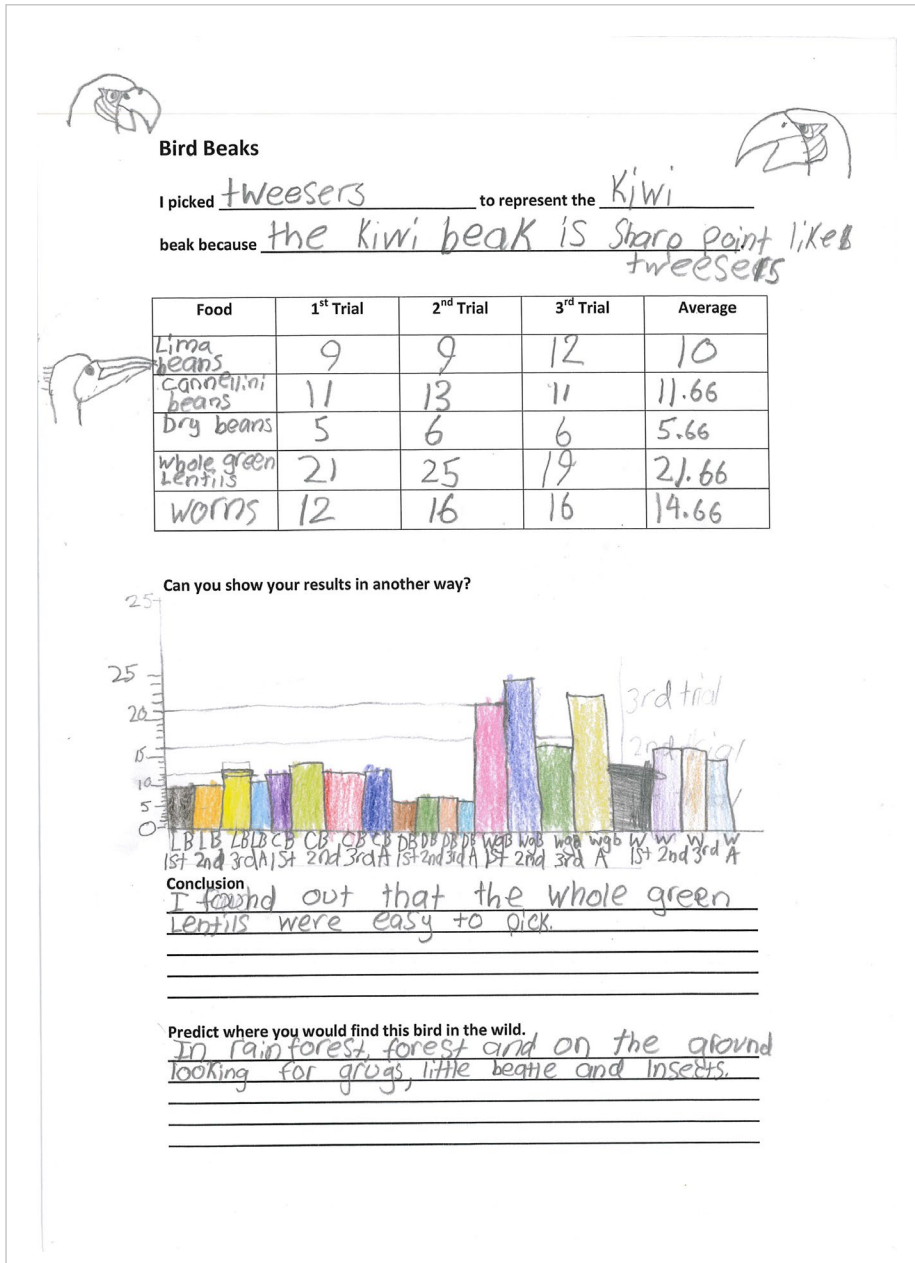 Bird Beaks
I picked tweesers to represent the Kiwi
beak because the kiwi beak is Sharp point like
tweesers
Food 1st Trial 2nd Trial 3rd Trial Average
Lima beans 9 9 12 10
Cannellini beans 11 13 11 11.66
Dry beans 5 6 6 5.66
Whole green Lentils 21 25 19 21.66
Worns 12 16 16 14.66
Can you show your results in another way?
25
25
20
15
10
5
0
3rd trial
2nd trial
LB LB LB LB CB CB CB CB DB DB DB DB WgB WgB wgB wgb W W W W
1st 2nd 3rd A 1st 2nd 3rd A 1st 2nd 3rd A 1st 2nd 3rd A 1st 2nd 3rd A
Conclusion
I found out that the whole green
Lentils were easy to pick.
Predict where you would find this bird in the wild.
In rainforest, forest and on the ground
looking for grugs, little beatle and Insects.